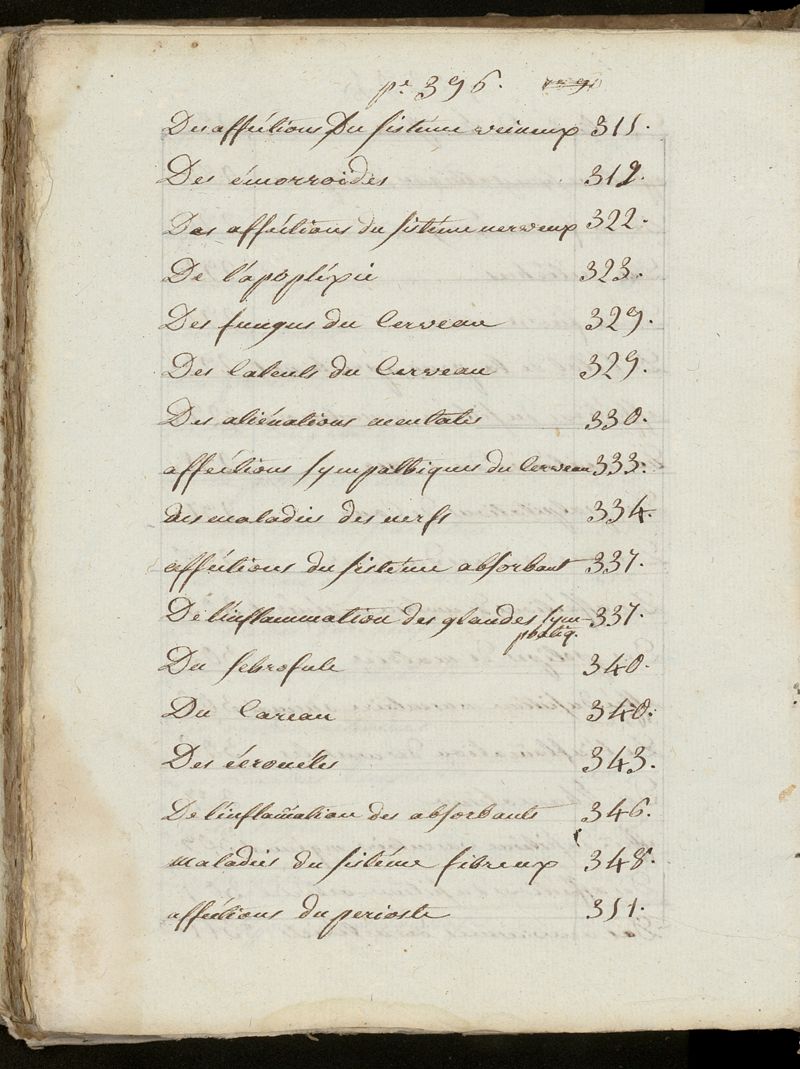 pe. 396.
Des afféctions Du sistéme veineux 311.
Des émorroides 312.
Des afféctions du sistéme nerveux 322.
De l'apopléxie 323.
Des fungus du Cerveau 329.
Des Calculs du Cerveau 329.
Des aliénations mentales 330.
afféctions sympathiques du Cerveau 333.
des maladies des nerfs 334.
afféctions du sistéme absorbant 337.
De l'inflammation des glandes sym- 337.
phatiq.
Du scbrofule 340.
Du Careau 340.
Des écrouéles 343.
De l'inflam̃ation des absorbants 346.
maladies du sistéme fibreux 348.
afféctions du perioste 351.